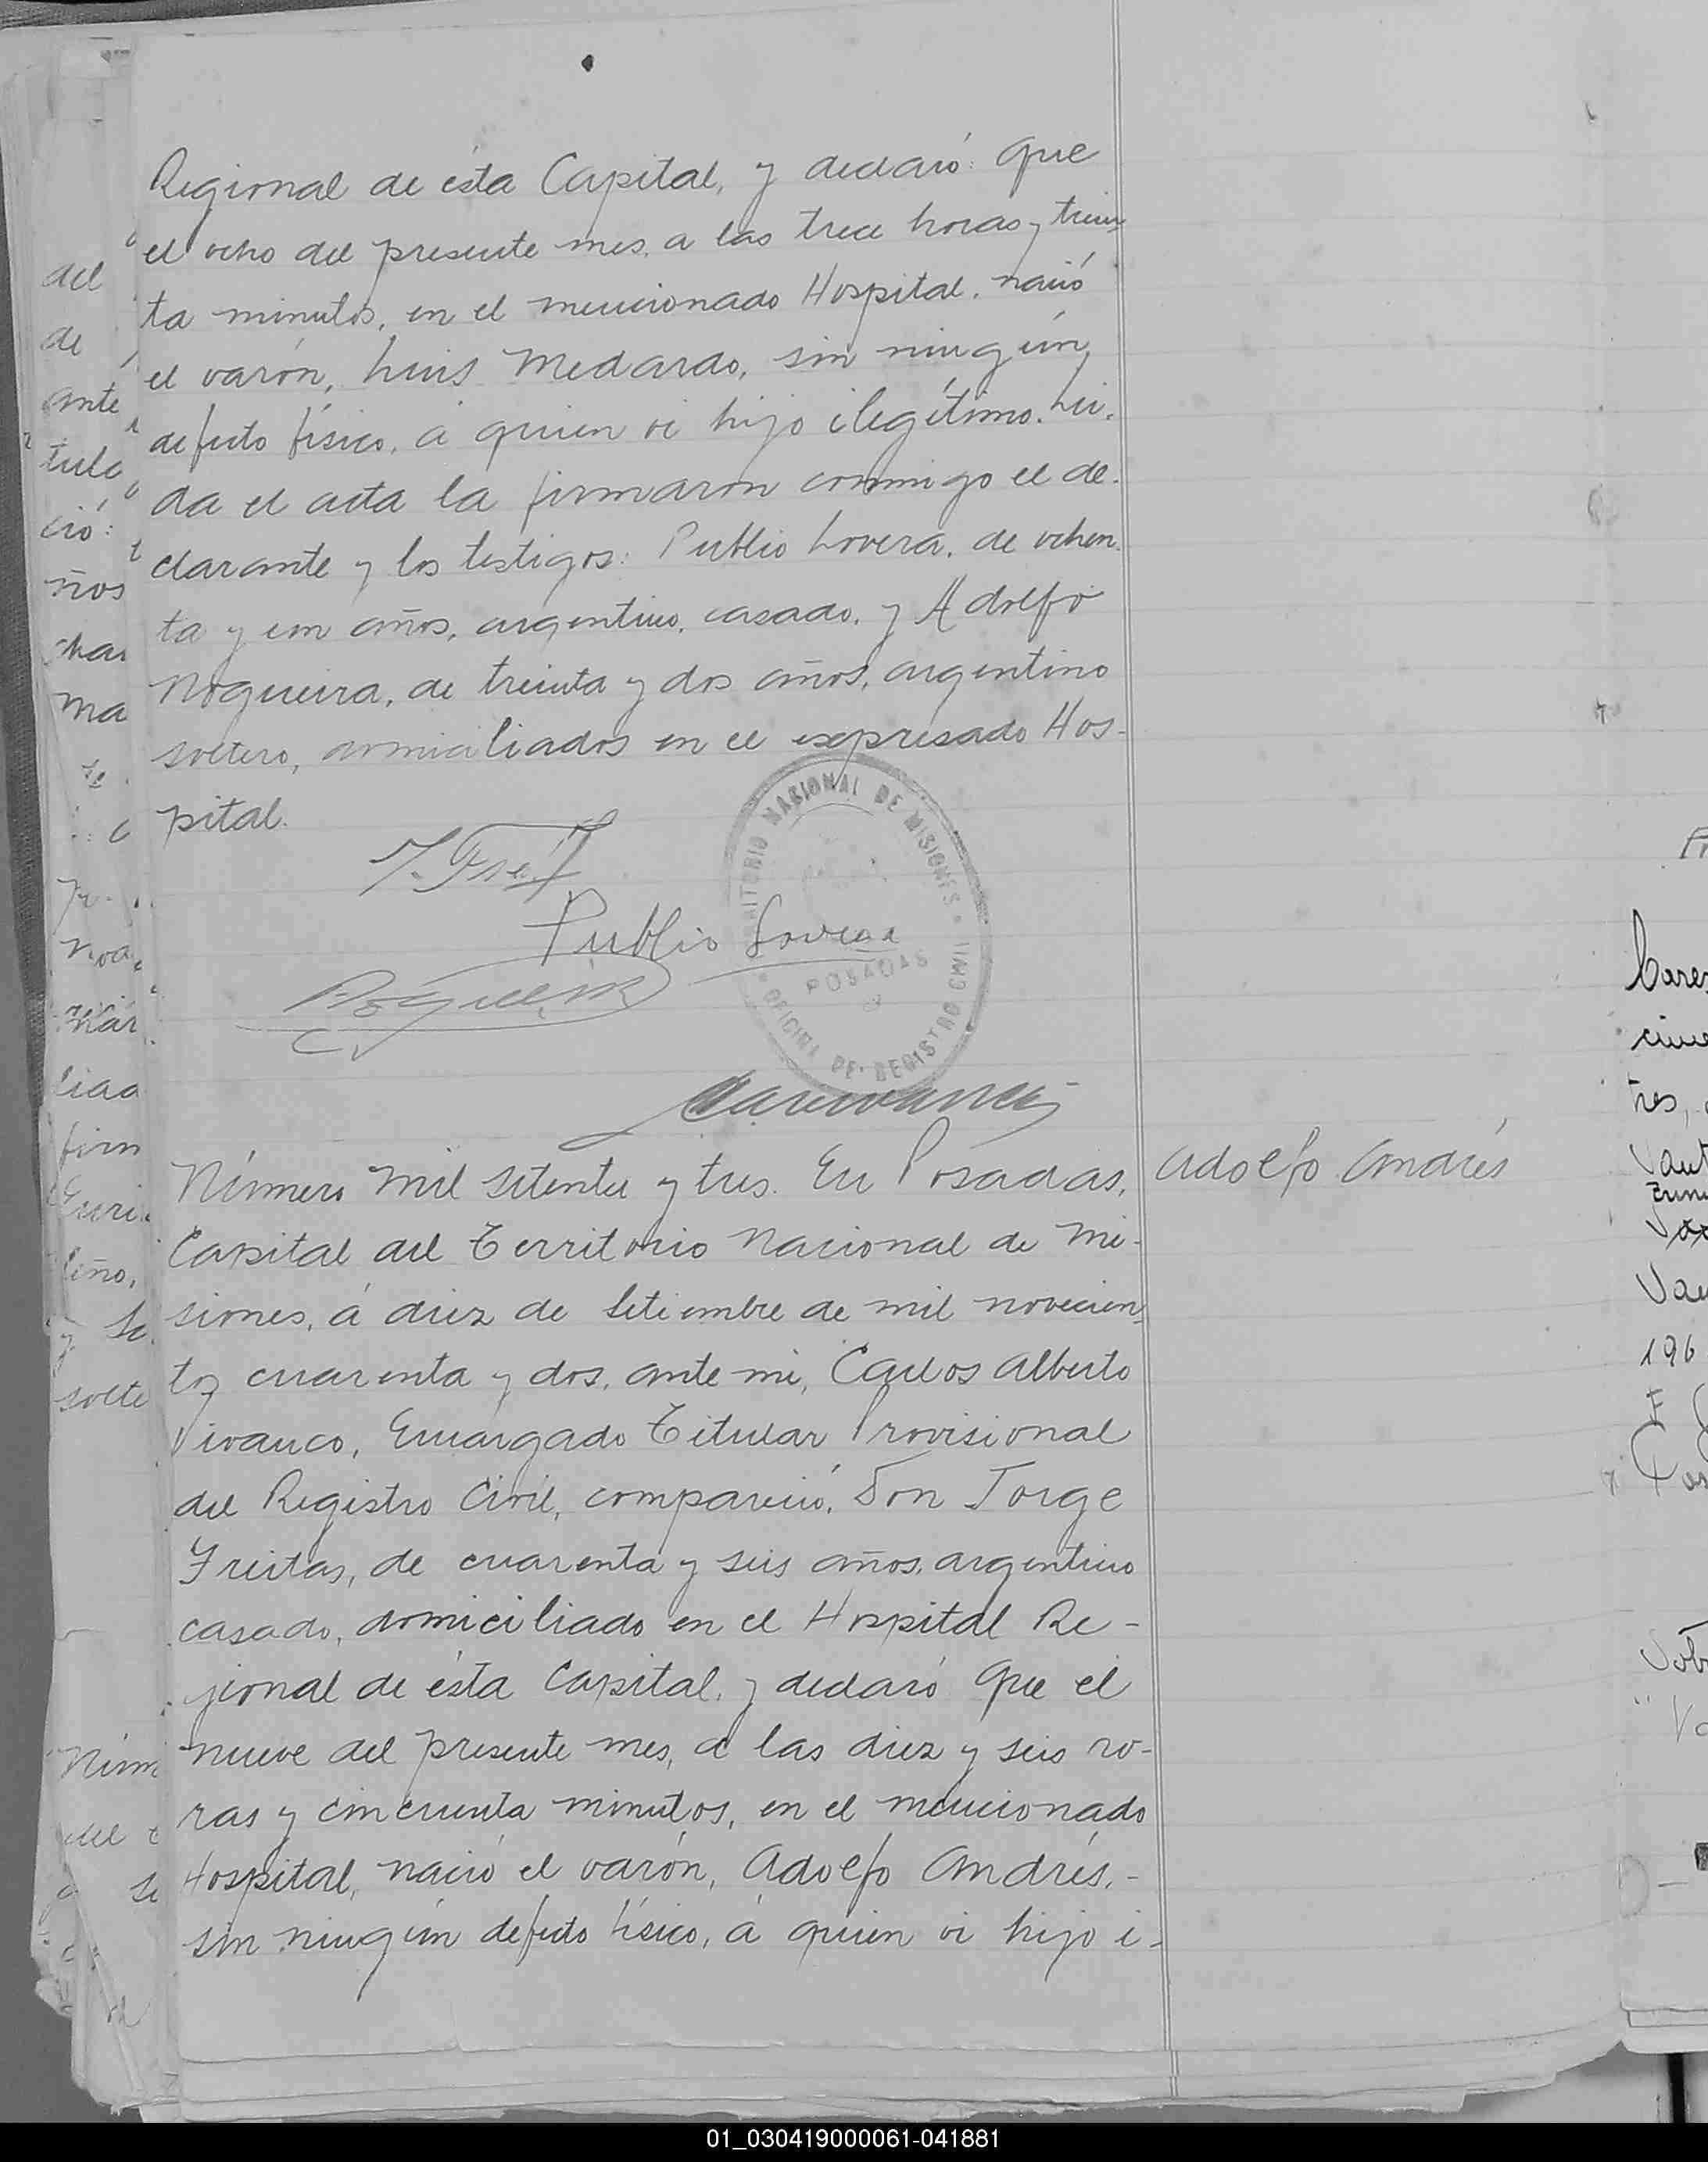 Regional de ésta Capital, y declaró: que
el ocho del presente mes, a las trece horas y trein
ta minutos, en el mencionado Hospital, nació
el varón, Luis Medardo, sin ningún
defecto físico, á quien vi hijo ilegítimo. Leí-
da el acta la firmaron conmigo el de-
clarante y los testigos: Publio Lovera, de ochen-
ta y un años, argentino, casado, y Adolfo
Nogueira, de treinta y dos años, argentino
soltero, domiciliados en el expresado Hos-
pital.
Publio Lovera
TERRITORIO NACIONAL DE MISIONES
POSADAS
OFICINA DE REGISTRO CIVIL
Número mil setenta y tres. En Posadas,
Adolfo Andrés
Capital del Territorio Nacional de Mi-
siones, á diez de Setiembre de mil novecien
tos cuarenta y dos, ante mi, Carlos Alberto
Vivanco, Encargado Titular Provisional
del Registro Civil, compareció, Don Jorge
Freitas, de cuarenta y seis años, argentino
casado, domiciliado en el Hospital Re-
jional de ésta Capital, y declaró que el
nueve del presente mes, a las diez y seis ho-
ras y cincuenta minutos, en el mencionado
Hospital, nació el varón, Adolfo Andrés,-
sin ningún defecto físico, á quien vi hijo i-
del
de
ante
tulo
ció:
ños
ma
firm
leño,
solte
196
tres,
01_030419000061-041881